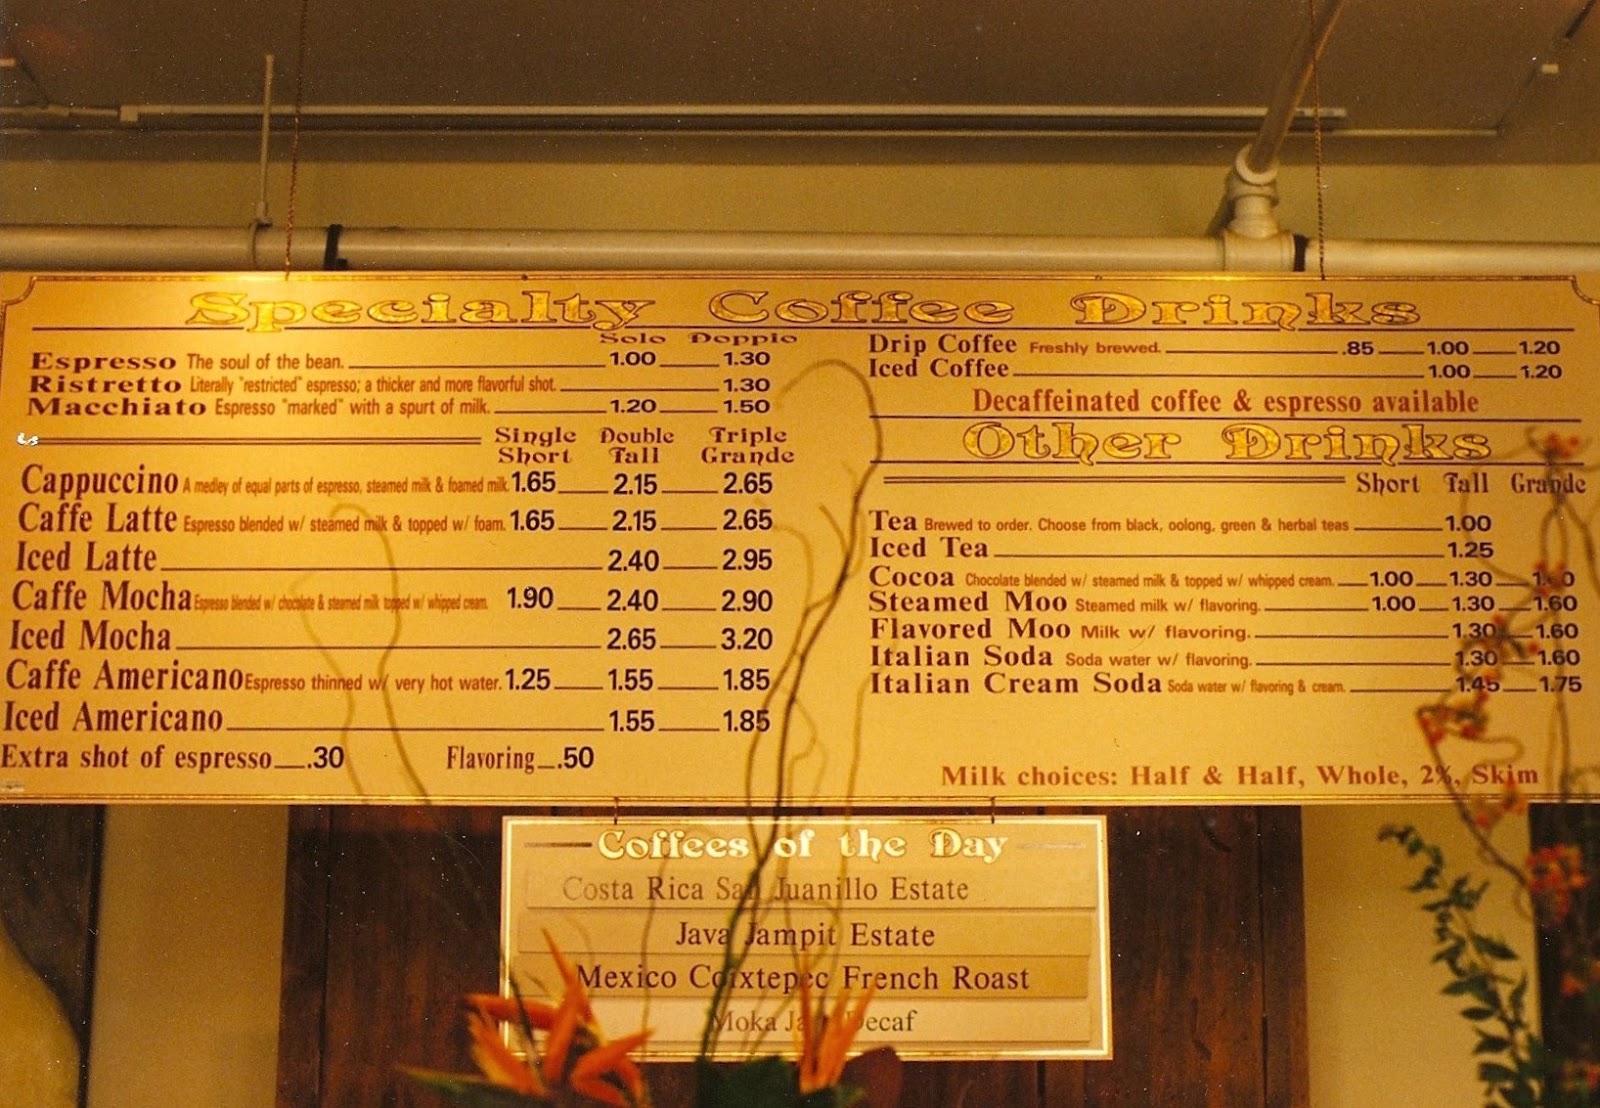 Specialty Coffee Drinks
Solo Doppio
Espresso The soul of the bean. 1.00 1.30
Ristretto Literally "restricted" espresso; a thicker and more flavorful shot. 1.30
Macchiato Espresso "marked" with a spurt of milk. 1.20 1.50
Single Double Triple
Short Tall Grande
Cappuccino A medley of equal parts of espresso, steamed milk & foamed milk. 1.65 2.15 2.65
Caffe Latte Espresso blended w/ steamed milk & topped w/ foam. 1.65 2.15 2.65
Iced Latte 2.40 2.95
Caffe Mocha Espresso blended w/ chocolate & steamed milk topped w/ whipped cream. 1.90 2.40 2.90
Iced Mocha 2.65 3.20
Caffe Americano Espresso thinned w/ very hot water. 1.25 1.55 1.85
Iced Americano 1.55 1.85
Extra shot of espresso .30 Flavoring .50
Drip Coffee Freshly brewed. .85 1.00 1.20
Iced Coffee 1.00 1.20
Decaffeinated coffee & espresso available
Other Drinks
Short Tall Grande
Tea Brewed to order. Choose from black, oolong, green & herbal teas 1.00
Iced Tea 1.25
Cocoa Chocolate blended w/ steamed milk & topped w/ whipped cream. 1.00 1.30 1.60
Steamed Moo Steamed milk w/ flavoring. 1.00 1.30 1.60
Flavored Moo Milk w/ flavoring. 1.30 1.60
Italian Soda Soda water w/ flavoring. 1.30 1.60
Italian Cream Soda Soda water w/ flavoring & cream. 1.45 1.75
Milk choices: Half & Half, Whole, 2%, Skim
Coffees of the Day
Costa Rica San Juanillo Estate
Java Jampit Estate
Mexico Coixtepec French Roast
Moka Decaf